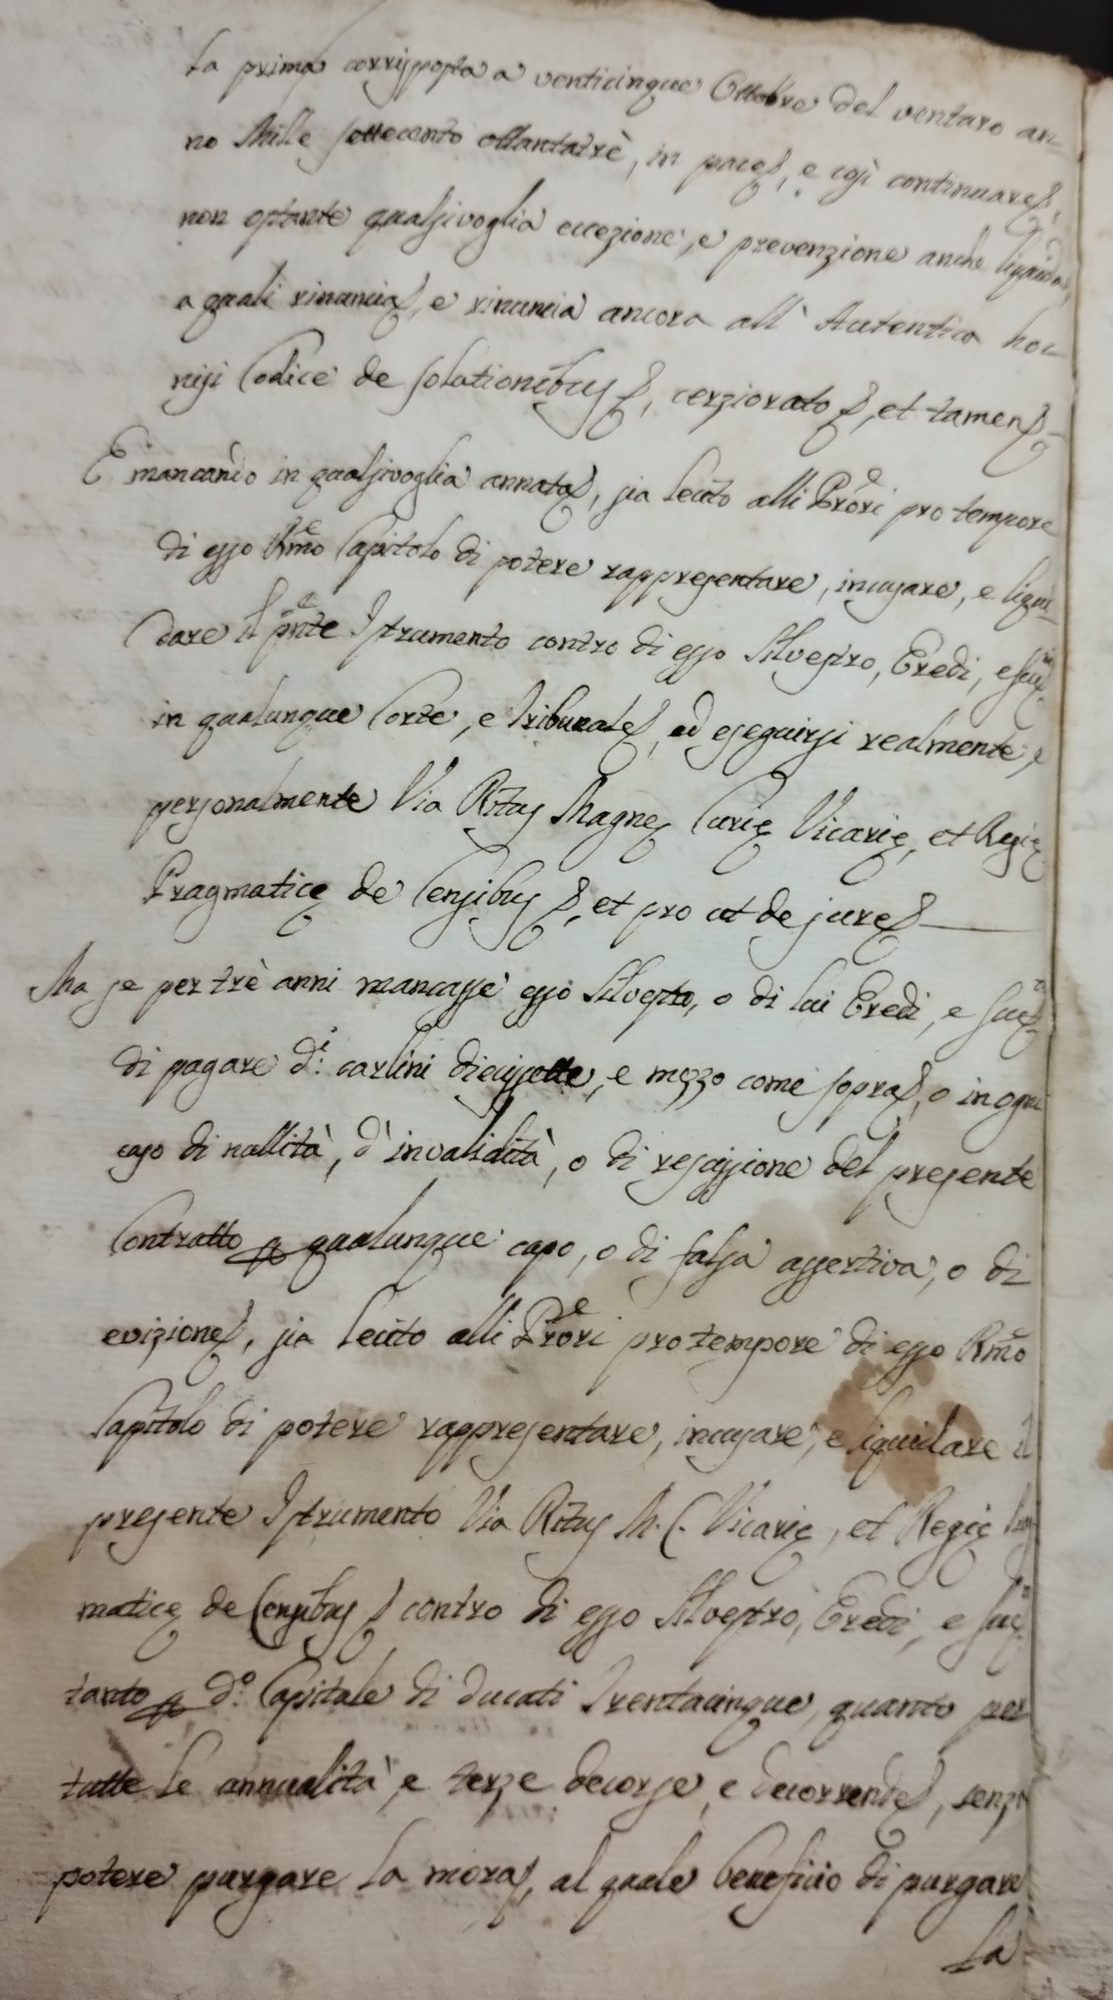 la prima corrisposta a venticinque Ottobre del venturo an-
no Mille settecento ottantatrè, in pace, e così continuare,
non ostante qualsivoglia eccezione, e prevenzione anche liquida,
a quali rinuncia, e rinuncia ancora all' Autentica hoc
nisi Codice de solutionibus, cerziorato, et tamen
E mancando in qualsivoglia annata, sia lecito alli Prori pro tempore
di esso Rmo Capitolo di potere rappresentare, incusare, e liqui-
dare il pnte Istrumento contro di esso Silvestro, Eredi, e
in qualunque Corte, e Tribunale, ed eseguirsi realmente, e
personalmente Via Ritus Magne Curie Vicarie, et Regie
Pragmatice de Censibus, et pro ut de jure
Ma se per trè anni mancasse esso Silvestro, o di lui Eredi, e
di pagare d.i carlini diecisette, e mezzo come sopra, o in ogni
caso di nullità, d'invalidità, o di rescissione del presente
Contratto p qualunque capo, o di falsa assertiva, o di
evizione, sia lecito alli Prori pro tempore di esso Rmo
Capitolo di potere rappresentare, incusare, e liquidare il
presente Istrumento Via Ritus M. C. Vicarie, et Regie Prag
matice de Censibus contro di esso Silvestro, Eredi, e
tanto p d.o Capitale di ducati Trentacinque, quanto per
tutte le annualità, e terze decorse, e decorrende, senza
potere purgare la mora, al quale beneficio di purgare
la